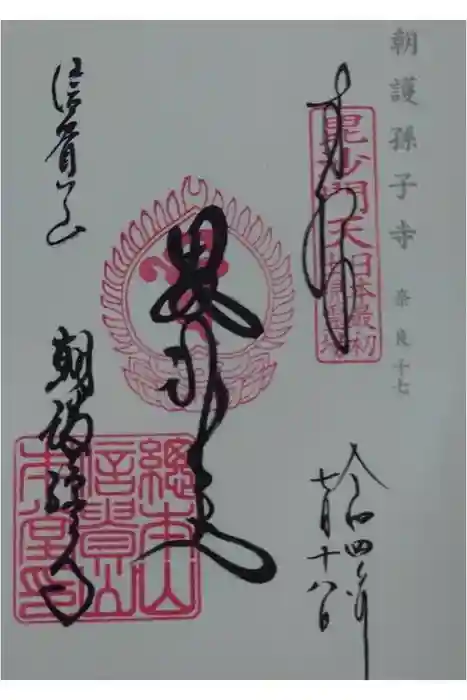 朝護孫子寺 奈良十七
奉拝
毘沙門天
日本最初
令和四年
七月十八日
信貴山
朝護孫子寺
總本山
信貴山
本堂印